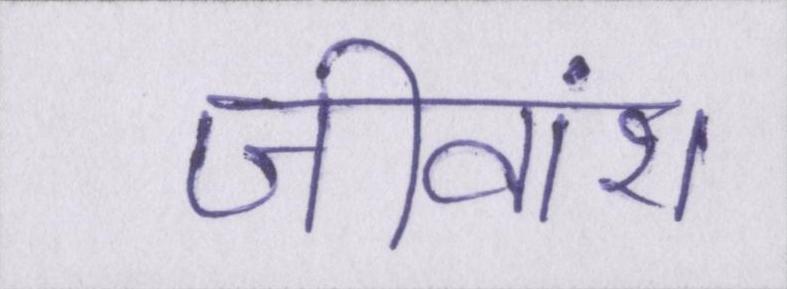 जीवांश